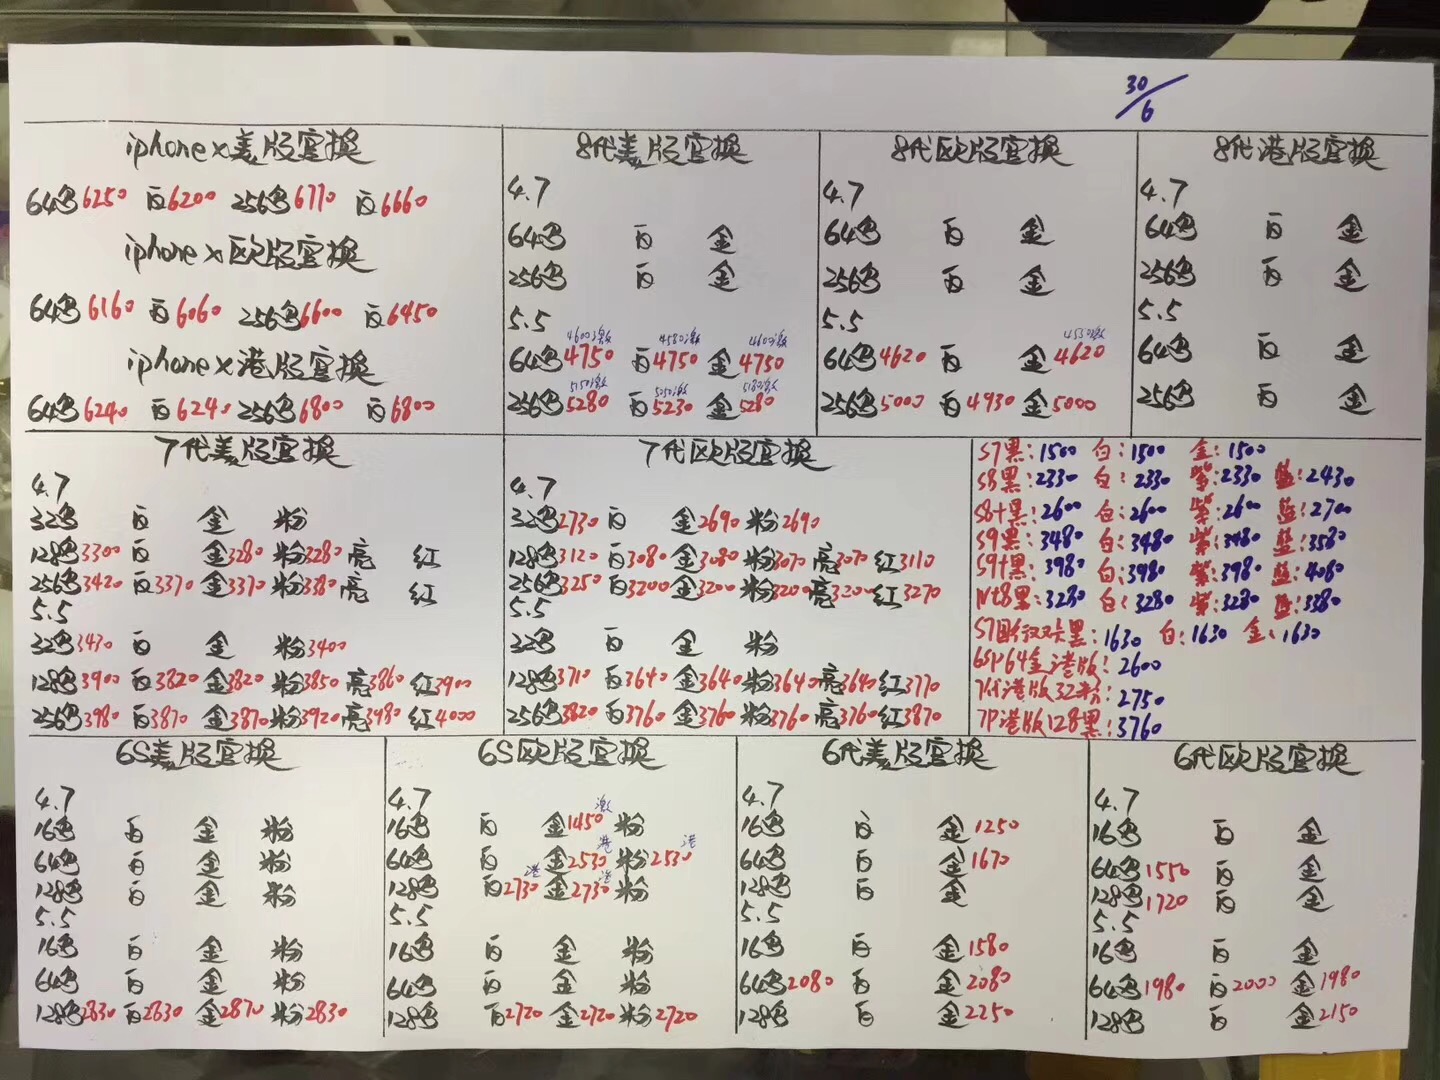 30/6
iphone x美版官换
64黑6250 白6200 256黑6770 白6660
iphone x欧版官换
64黑6160 白6060 256黑6600 白6450
iphone x港版官换
64黑6240 白6240 256黑6800 白6800
8代美版官换
4.7
64黑 白 金
256黑 白 金
5.5
4600激 4580激 4600激
64黑4750 白4750 金4750
5150激 5050激 5180激
256黑5280 白5230 金5280
8代欧版官换
4.7
64黑 白 金
256黑 白 金
5.5
4530激
64黑4620 白 金4620
256黑5000 白4930 金5000
8代港版官换
4.7
64黑 白 金
256黑 白 金
5.5
64黑 白 金
256黑 白 金
7代美版官换
4.7
32黑 白 金 粉
128黑3300 白 金3280 粉3280 亮 红
256黑3420 白3370 金3370 粉3380 亮 红
5.5
32黑3430 白 金 粉3400
128黑3900 白3820 金3820 粉3850 亮3860 红3900
256黑3980 白3870 金3870 粉3920 亮3980 红4000
7代欧版官换
4.7
32黑2730 白 金2690 粉2690
128黑3120 白3080 金3080 粉3070 亮3070 红3110
256黑3250 白3200 金3200 粉3200 亮3200 红3270
5.5
32黑 白 金 粉
128黑3710 白3640 金3640 粉3640 亮3640 红3770
256黑3820 白3760 金3760 粉3760 亮3760 红3870
S7黑:1500 白:1500 金:1500
S8黑:2330 白:2330 紫:2330 蓝:2430
S8+黑:2600 白:2600 紫:2600 蓝:2700
S9黑:3480 白:3480 紫:3480 蓝:3580
S9+黑:3980 白:3980 紫:3980 蓝:4080
Nt8黑:3280 白:3280 紫:3280 蓝:3380
S7国际双卡黑:1630 白:1630 金:1630
6SP64金港版:2600
7代港版32粉:2750
7P港版128黑:3760
6S美版官换
4.7
16黑 白 金 粉
64黑 白 金 粉
128黑 白 金 粉
5.5
16黑 白 金 粉
64黑 白 金 粉
128黑2830 白2830 金2870 粉2830
6S欧版官换
4.7
激
16黑 白 金1450 粉
港 港
64黑 白 金2530 粉2530
港 港
128黑 白2730 金2730 粉
5.5
16黑 白 金 粉
64黑 白 金 粉
128黑 白2720 金2720 粉2720
6代美版官换
4.7
16黑 白 金1250
64黑 白 金1670
128黑 白 金
5.5
16黑 白 金1580
64黑2080 白 金2080
128黑 白 金2250
6代欧版官换
4.7
16黑 白 金
64黑1550 白 金
128黑1720 白 金
5.5
16黑 白 金
64黑1980 白2000 金1980
128黑 白 金2150